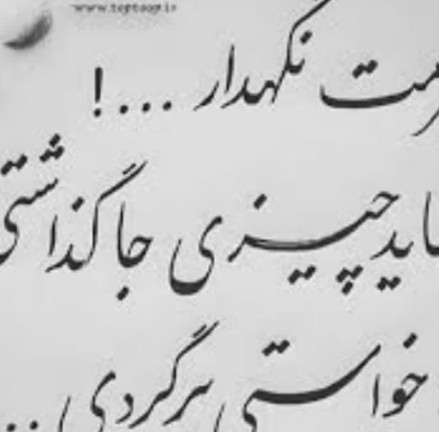 www.toptoop.ir
حرمت نگهدار ...!
شاید چیزی جا گذاشتی
خواستی برگردی ...